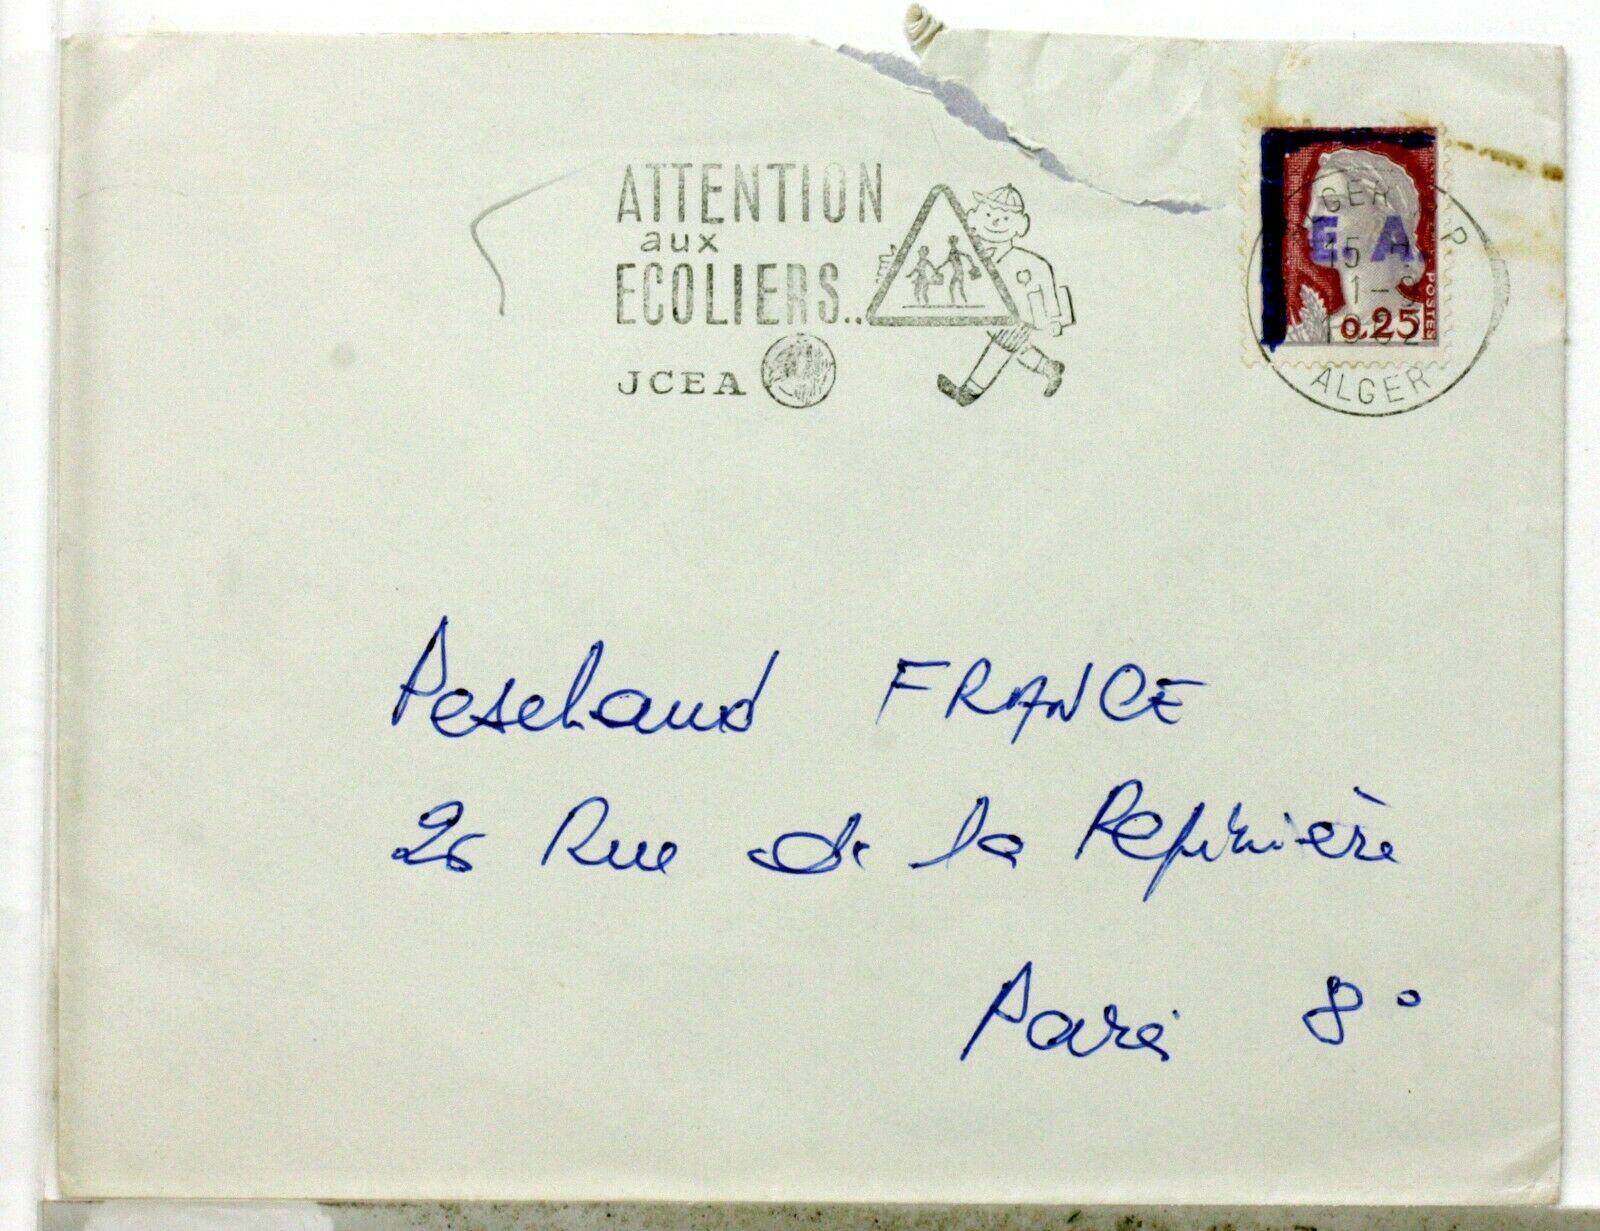 ATTENTION
aux
ECOLIERS..
JCEA
ALGER R.P
E.A.
15 H
1-9
1962
POSTES
0,25
ALGER
Peschaud FRANCE
26 Rue de la Pepinière
Paris 8°